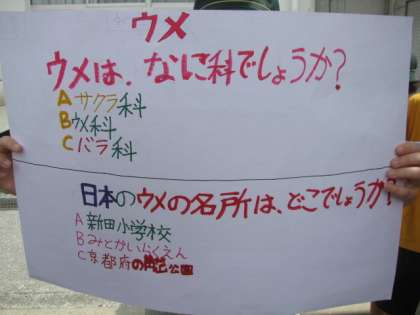 ウメ
ウメは、なに科でしょうか?
A サクラ科
B ウメ科
C バラ科
日本のウメの名所は、どこでしょうか?
A 新田小学校
B みとかいらくえん
C 京都府の 公園